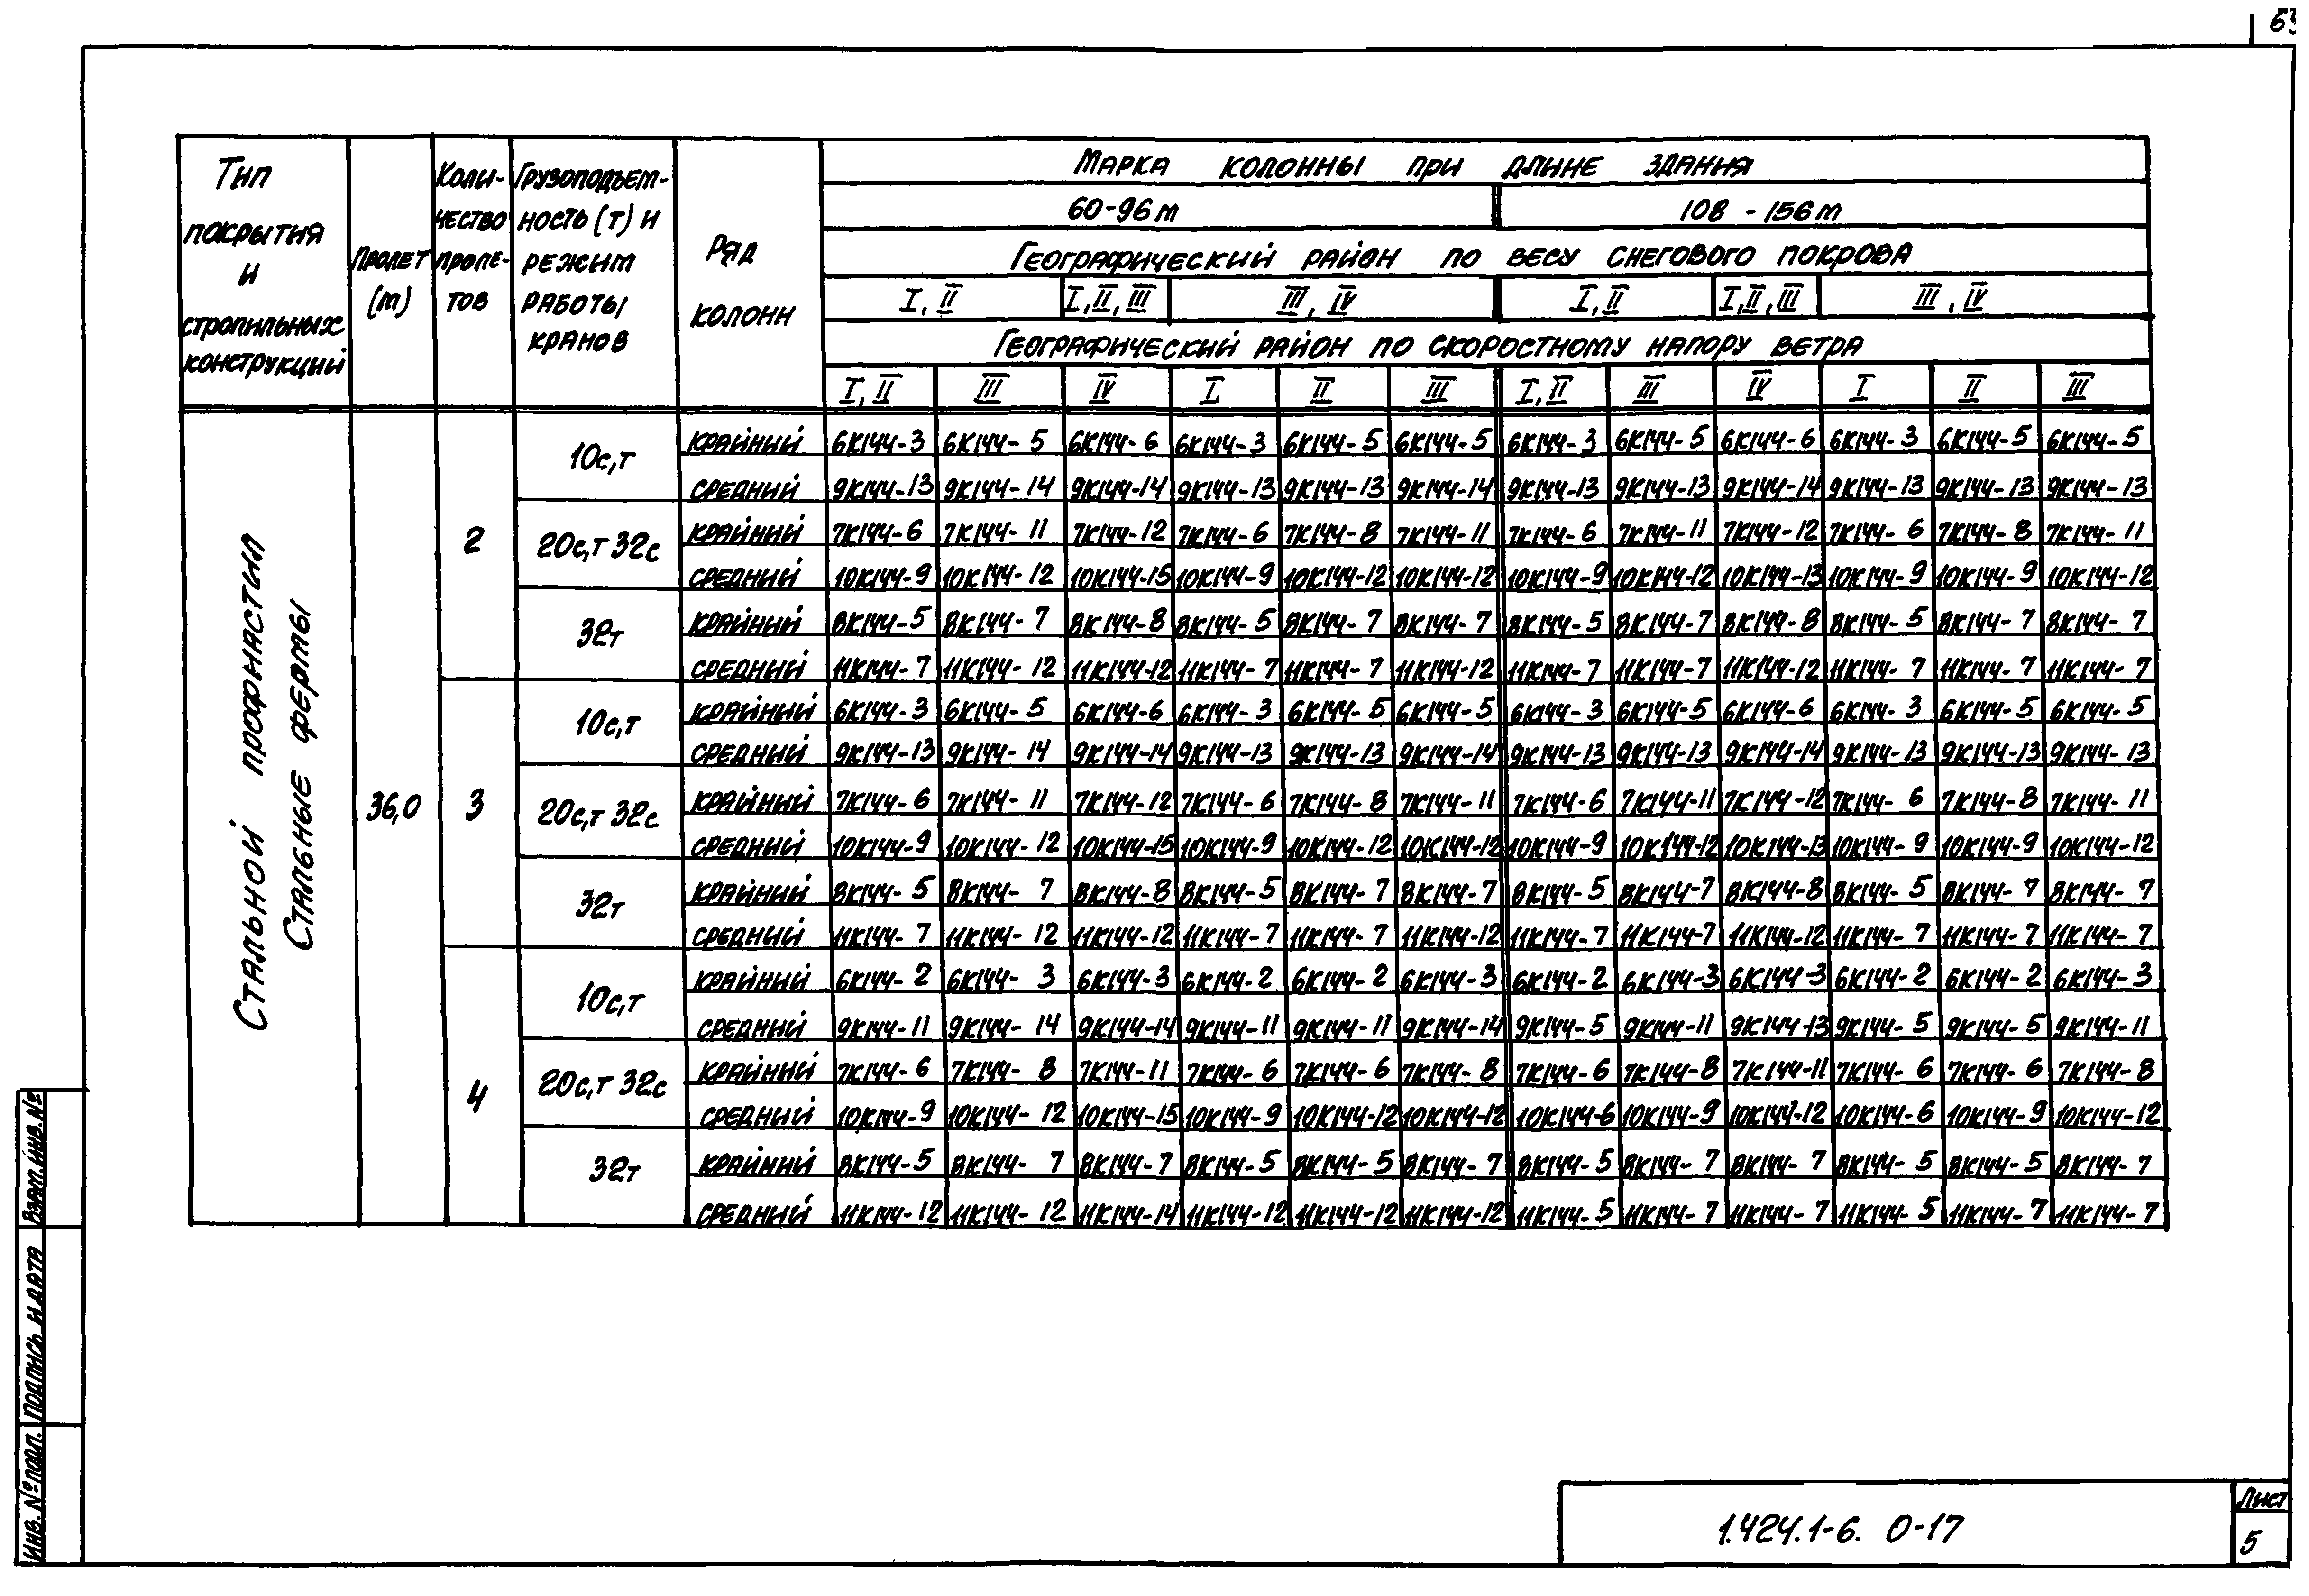 Тип покрытия и стропильных конструкций
Пролет (м)
Коли-чество проле-тов
Грузоподъем-ность (т) и режим работы кранов
Ряд колонн
Марка колонны при длине здания
60-96м 108-156м
Географический район по весу снегового покрова
I, II I, II, III III, IV I, II I, II, III III, IV
Географический район по скоростному напору ветра
I, II III IV I II III I, II III IV I II III
Стальной профнастил
Стальные фермы
36,0
2
10с,т
крайний 6К144-3 6К144-5 6К144-6 6К144-3 6К144-5 6К144-5 6К144-3 6К144-5 6К144-6 6К144-3 6К144-5 6К144-5
средний 9К144-13 9К144-14 9К144-14 9К144-13 9К144-13 9К144-14 9К144-13 9К144-13 9К144-14 9К144-13 9К144-13 9К144-13
20с,т 32с
крайний 7К144-6 7К144-11 7К144-12 7К144-6 7К144-8 7К144-11 7К144-6 7К144-11 7К144-12 7К144-6 7К144-8 7К144-11
средний 10К144-9 10К144-12 10К144-15 10К144-9 10К144-12 10К144-12 10К144-9 10К144-12 10К144-13 10К144-9 10К144-9 10К144-12
32т
крайний 8К144-5 8К144-7 8К144-8 8К144-5 8К144-7 8К144-7 8К144-5 8К144-7 8К144-8 8К144-5 8К144-7 8К144-7
средний 11К144-7 11К144-12 11К144-12 11К144-7 11К144-7 11К144-12 11К144-7 11К144-7 11К144-12 11К144-7 11К144-7 11К144-7
3
10с,т
крайний 6К144-3 6К144-5 6К144-6 6К144-3 6К144-5 6К144-5 6К144-3 6К144-5 6К144-6 6К144-3 6К144-5 6К144-5
средний 9К144-13 9К144-14 9К144-14 9К144-13 9К144-13 9К144-14 9К144-13 9К144-13 9К144-14 9К144-13 9К144-13 9К144-13
20с,т 32с
крайний 7К144-6 7К144-11 7К144-12 7К144-6 7К144-8 7К144-11 7К144-6 7К144-11 7К144-12 7К144-6 7К144-8 7К144-11
средний 10К144-9 10К144-12 10К144-15 10К144-9 10К144-12 10К144-12 10К144-9 10К144-12 10К144-13 10К144-9 10К144-9 10К144-12
32т
крайний 8К144-5 8К144-7 8К144-8 8К144-5 8К144-7 8К144-7 8К144-5 8К144-7 8К144-8 8К144-5 8К144-7 8К144-7
средний 11К144-7 11К144-12 11К144-12 11К144-7 11К144-7 11К144-12 11К144-7 11К144-7 11К144-12 11К144-7 11К144-7 11К144-7
4
10с,т
крайний 6К144-2 6К144-3 6К144-3 6К144-2 6К144-2 6К144-3 6К144-2 6К144-3 6К144-3 6К144-2 6К144-2 6К144-3
средний 9К144-11 9К144-14 9К144-14 9К144-11 9К144-11 9К144-14 9К144-5 9К144-11 9К144-13 9К144-5 9К144-5 9К144-11
20с,т 32с
крайний 7К144-6 7К144-8 7К144-11 7К144-6 7К144-6 7К144-8 7К144-6 7К144-8 7К144-11 7К144-6 7К144-6 7К144-8
средний 10К144-9 10К144-12 10К144-15 10К144-9 10К144-12 10К144-12 10К144-6 10К144-9 10К144-12 10К144-6 10К144-9 10К144-12
32т
крайний 8К144-5 8К144-7 8К144-7 8К144-5 8К144-5 8К144-7 8К144-5 8К144-7 8К144-7 8К144-5 8К144-5 8К144-7
средний 11К144-12 11К144-12 11К144-14 11К144-12 11К144-12 11К144-12 11К144-5 11К144-7 11К144-7 11К144-5 11К144-7 11К144-7
Взам. инв. №
Подпись и дата
Инв. № подл.
1.424.1-6. 0-17
Лист
5